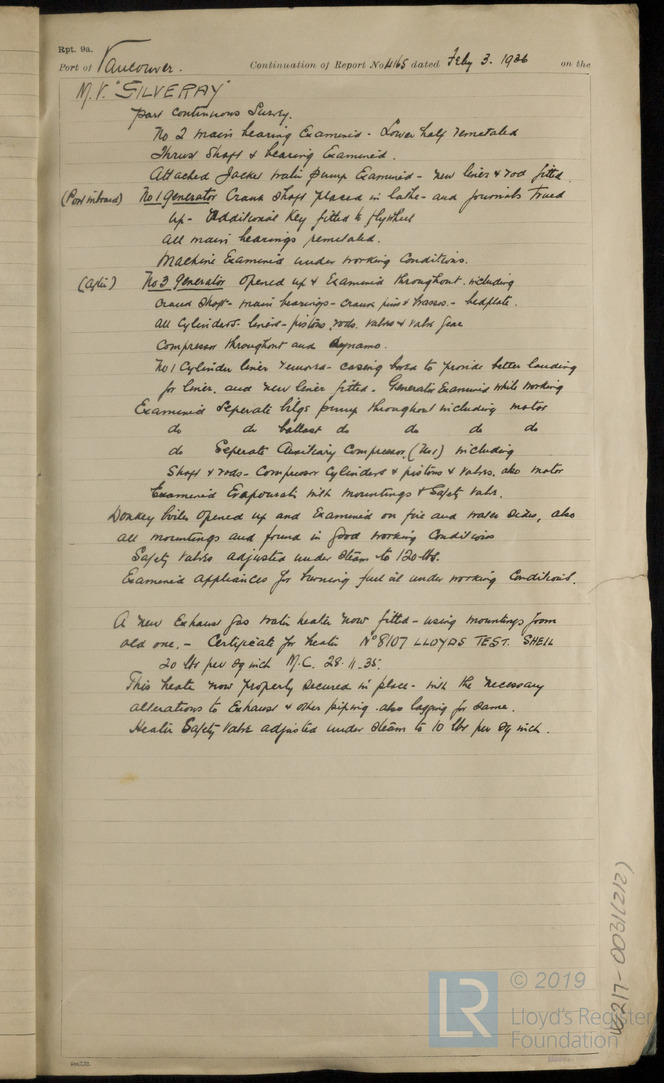 Rpt. 9a.
Port of Vancouver. Continuation of Report No 4165 dated Feby 3. 1936 on the
M.V. "SILVERAY"
Part Continuous Survey.
No 2 main bearing Examined - Lower half remetaled
Thrust Shaft & bearing Examined.
Attached Jacket water pump Examined - new liner & rod fitted.
(Port inboard) No 1 Generator Crank shaft placed in lathe - and journals trued
up - Additional key fitted to flywheel
all main bearings remetaled.
Machine Examined under working Conditions.
(After) No 3 Generator opened up & Examined throughout. including
Crank shaft - main bearings - crank pins & brasses - bedplate.
all Cylinders. liners - pistons, rods. valves & valve gear
Compressor throughout and dynamo.
No 1 Cylinder liner removed - casing bored to provide better landing
for liner. and new liner fitted. Generator Examined while working
Examined Seperate bilge pump throughout including motor
do do ballast do do do do
do Seperate Auxiliary Compressor, (No 1) including
Shaft & rods - Compressor Cylinders & pistons & valves, also motor
Examined Evaporator with mountings & Safety valve.
Donkey boiler opened up and Examined on fire and water sides, also
all mountings and found in good working Conditions
Safety valves adjusted under steam to 120 lbs.
Examined appliances for burning fuel oil under working Conditions.
A new Exhaust gas water heater now fitted - using mountings from
old one. - Certificate for heater No 8107 LLOYDS TEST. SHELL
20 lbs per sq inch M.C. 28.11.35.
This heater now properly secured in place - with the necessary
alterations to Exhaust & other piping also lagging for same.
Heater Safety valve adjusted under steam to 10 lbs per sq inch.
W217-0031(2/2)
© 2019
LR
Lloyd's Register
Foundation